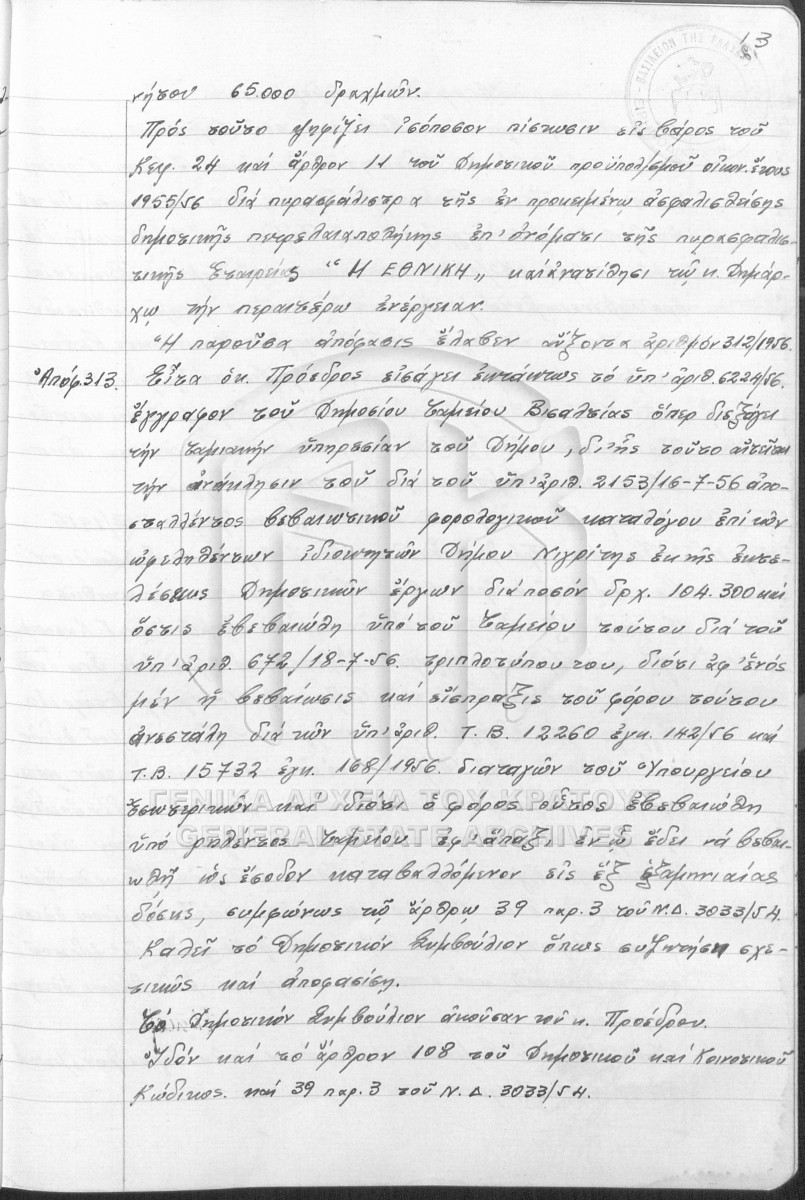 13
νήτου 65.000 δραχμῶν.
Πρός τοῦτο ψηφίζει ἰσόποσον πίστωσιν εἰς βάρος τοῦ
Κεφ. 24 καί ἄρθρον 11 τοῦ Δημοτικοῦ προϋπολ/σμοῦ οἰκον. ἔτους
1955/56 διά πυρασφάλιστρα τῆς ἐν προκειμένῳ ἀσφαλισθείσης
δημοτικῆς πετρελαιαποθήκης ἐπ' ὀνόματι τῆς πυρασφαλισ-
τικῆς Ἑταιρείας "Η ΕΘΝΙΚΗ„ καί ἀνατίθησι τῷ κ. Δημάρ-
χῳ τήν περαιτέρω ἐνέργειαν.
Ἡ παροῦσα ἀπόφασις ἔλαβεν αὔξοντα ἀριθμόν 312/1956.
Ἀπόφ. 313. Εἶτα ὁ κ. Πρόεδρος εἰσάγει ἐκτάκτως τό ὑπ' ἀριθ. 6224/56.
ἔγγραφον τοῦ Δημοσίου Ταμείου Βισαλτίας ὅπερ διεξάγει
τήν ταμιακήν ὑπηρεσίαν τοῦ Δήμου, δι' ἧς τοῦτο αἰτεῖται
τήν ἀνάκλησιν τοῦ διά τοῦ ὑπ' ἀριθ. 2153/16-7-56 ἀπο-
σταλλέντος βεβαιωτικοῦ φορολογικοῦ καταλόγου ἐπί τῶν
ὠφεληθέντων ἰδιοκτητῶν Δήμου Νιγρίτης ἐκ τῆς ἐκτε-
λέσεως Δημοτικῶν ἔργων διά ποσόν δρχ. 104.300 καί
ὅστις ἐβεβαιώθη ὑπό τοῦ Ταμείου τούτου διά τοῦ
ὑπ' ἀριθ. 672/18-7-56. τριπλοτύπου του, διότι ἀφ' ἑνός
μέν ἡ βεβαίωσις καί εἴσπραξις τοῦ φόρου τούτου
ἀνεστάλη διά τῶν ὑπ' ἀριθ. Τ.Β. 12260 ἐγκ. 142/56 καί
Τ.Β. 15732 ἐγκ. 168/1956. διαταγῶν τοῦ Ὑπουργείου
Ἐσωτερικῶν καί διότι ὁ φόρος οὗτος ἐβεβαιώθη
ὑπό ρηθέντος Ταμείου ἐφ' ἅπαξ ἐν ᾧ ἔδει νά βεβαι-
ωθῇ ὡς ἔσοδον καταβαλλόμενον εἰς ἕξ ἑξαμηνιαίας
δόσεις, συμφώνως τῷ ἄρθρῳ 39 παρ. 3 τοῦ Ν.Δ. 3033/54.
Καλεῖ τό Δημοτικόν Συμβούλιον ὅπως συζητήσῃ σχε-
τικῶς καί ἀποφασίσῃ.
Τό Δημοτικόν Συμβούλιον ἀκοῦσαν τοῦ κ. Προέδρου.
Ἰδόν καί τό ἄρθρον 108 τοῦ Δημοτικοῦ καί Κοινοτικοῦ
Κώδικος. καί 39 παρ. 3 τοῦ Ν.Δ. 3033/54.
ΓΕΝΙΚΑ ΑΡΧΕΙΑ ΤΟΥ ΚΡΑΤΟΥΣ
GENERAL STATE ARCHIVES